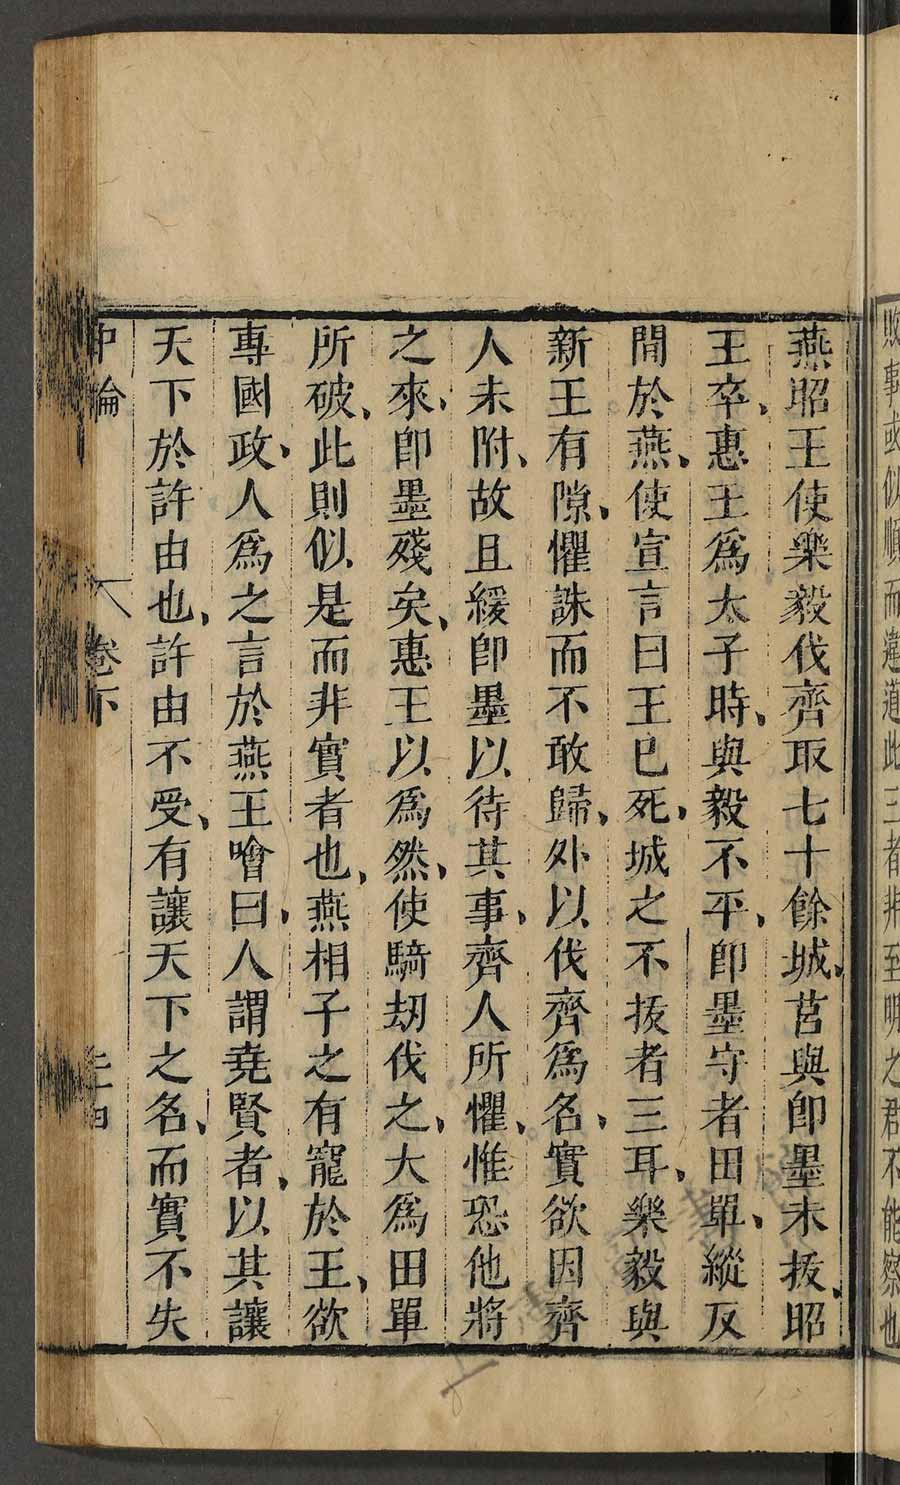 敗事或似順而違道此三者非至明之君不能察也
燕昭王使樂毅伐齊取七十餘城莒與卽墨未拔昭
王卒惠王爲太子時與毅不平卽墨守者田單縱反
間於燕使宣言曰王已死城之不拔者三耳樂毅與
新王有隙懼誅而不敢歸外以伐齊爲名實欲因齊
人未附故且緩卽墨以待其事齊人所懼惟恐他將
之來卽墨殘矣惠王以爲然使騎刼伐之大爲田單
所破此則似是而非實者也燕相子之有寵於王欲
專國政人爲之言於燕王噲曰人謂堯賢者以其讓
天下於許由也許由不受有讓天下之名而實不失
中論 卷下